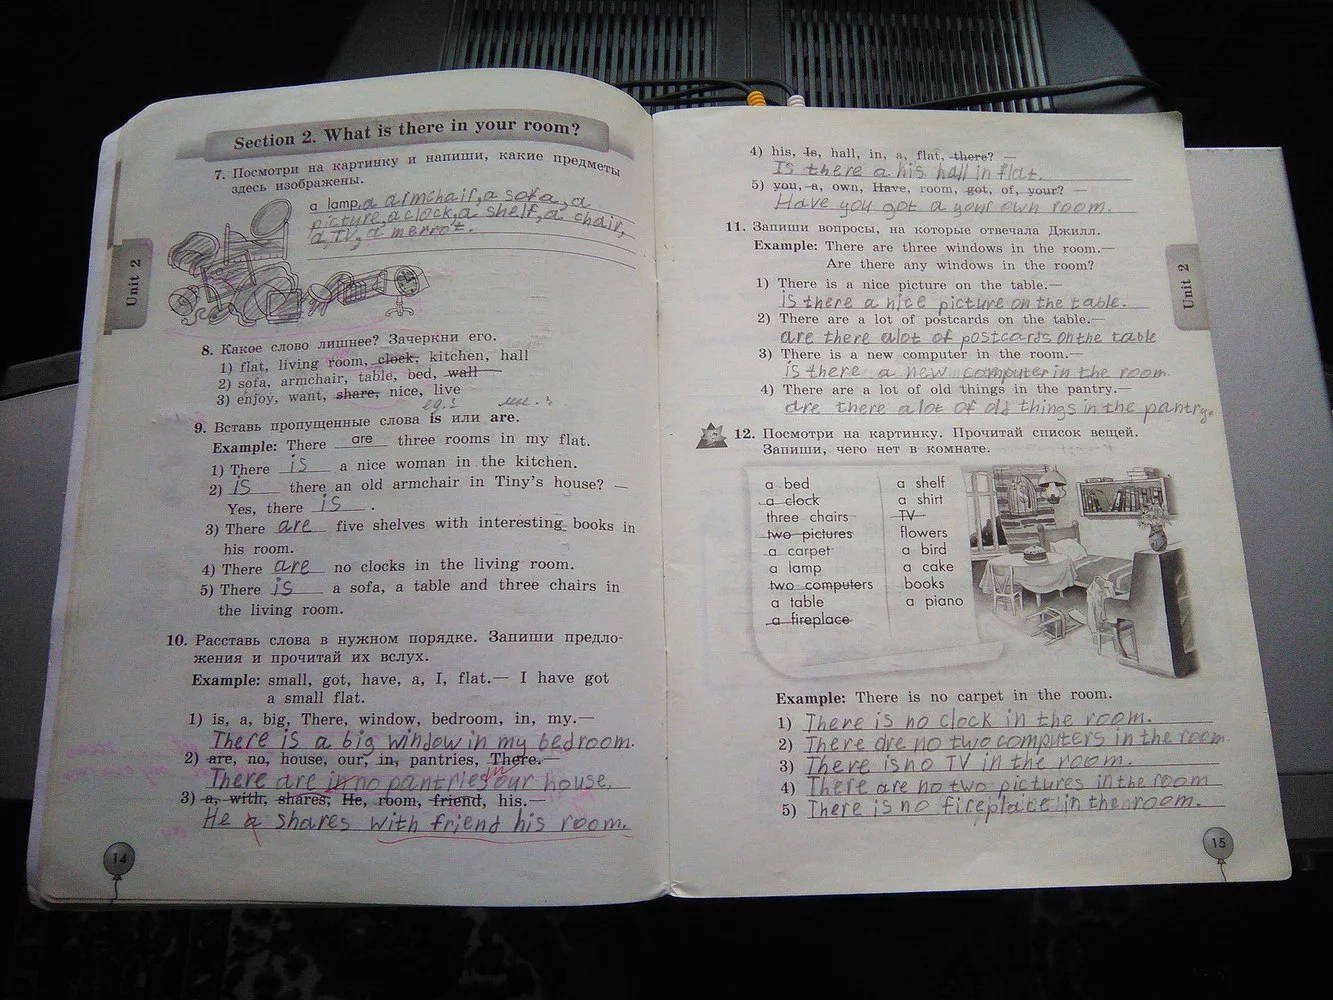 Section 2. What is there in your room?
7. Посмотри на картинку и напиши, какие предметы
здесь изображены.
a lamp, a armchair, a sofa, a
picture, a clock, a shelf, a chair,
a TV, a merrot.
Unit 2
8. Какое слово лишнее? Зачеркни его.
1) flat, living room, clock, kitchen, hall
2) sofa, armchair, table, bed, wall
3) enjoy, want, share, nice, live
ед.ч мн.ч
9. Вставь пропущенные слова is или are.
Example: There are three rooms in my flat.
1) There is a nice woman in the kitchen.
2) is there an old armchair in Tiny's house? —
Yes, there is.
3) There are five shelves with interesting books in
his room.
4) There are no clocks in the living room.
5) There is a sofa, a table and three chairs in
the living room.
10. Расставь слова в нужном порядке. Запиши предло-
жения и прочитай их вслух.
Example: small, got, have, a, I, flat.— I have got
a small flat.
1) is, a, big, There, window, bedroom, in, my.—
There is a big window in my bedroom.
2) are, no, house, our, in, pantries, There.—
There are in no pantries in our house.
3) a, with, shares, He, room, friend, his.—
He a shares with friend his room.
14
4) his, Is, hall, in, a, flat, there? —
Is there a his hall in flat.
5) you, a, own, Have, room, got, of, your? —
Have you got a your own room.
11. Запиши вопросы, на которые отвечала Джилл.
Example: There are three windows in the room.—
Are there any windows in the room?
1) There is a nice picture on the table.—
is there a nice picture on the table.
2) There are a lot of postcards on the table.—
are there alot of postcards on the table
3) There is a new computer in the room.—
is there a new computer in the room.
4) There are a lot of old things in the pantry.—
are there a lot of old things in the pantry.
Unit 2
12. Посмотри на картинку. Прочитай список вещей.
Запиши, чего нет в комнате.
a bed
a clock
three chairs
two pictures
a carpet
a lamp
two computers
a table
a fireplace
a shelf
a shirt
TV
flowers
a bird
a cake
books
a piano
Example: There is no carpet in the room.
1) There is no clock in the room.
2) There are no two computers in the room.
3) There is no TV in the room.
4) There are no two pictures in the room
5) There is no fireplace in the room.
15